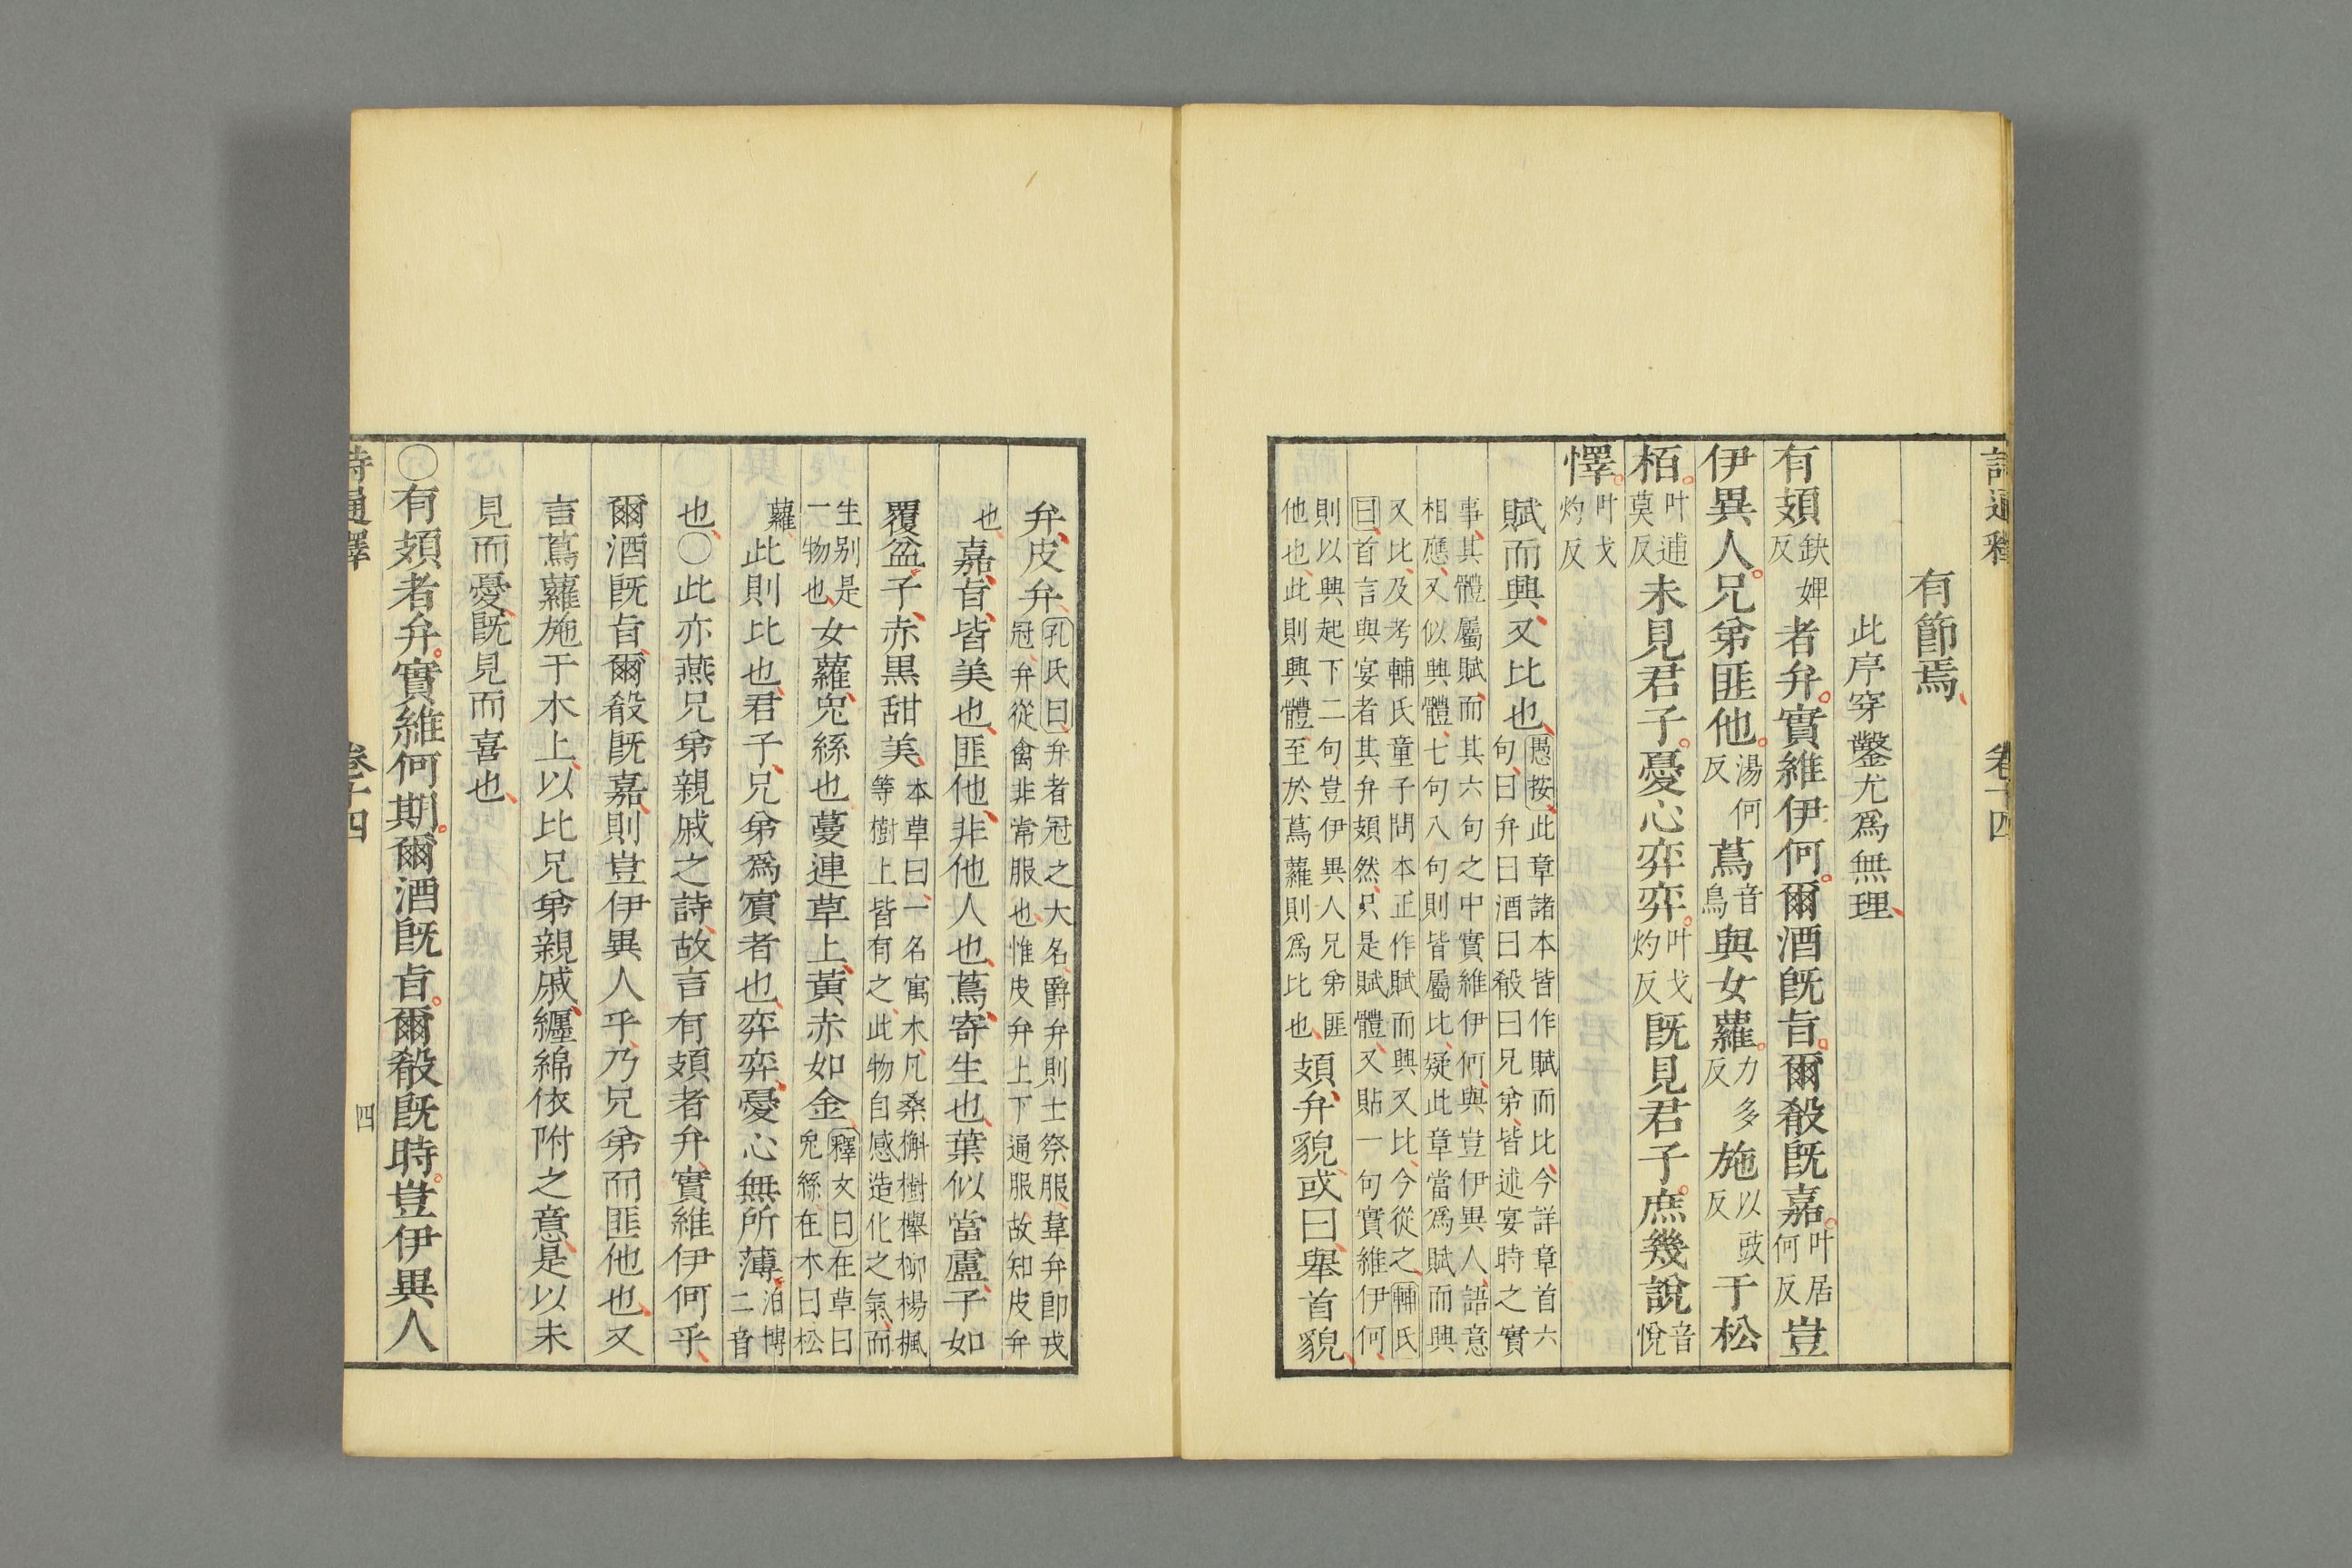 詩通釋 卷十四
有節焉
此序穿鑿尤爲無理
有頍缺婢反者弁實維伊何爾酒旣旨爾殽旣嘉叶居何反豈
伊異人兄弟匪他湯何反蔦音鳥與女蘿力多反施以豉反于松
栢叶逋莫反未見君子憂心弈弈叶弋灼反旣見君子庶幾說音悅
懌叶弋灼反
賦而興又比也愚按此章諸本皆作賦而比今詳章首六
句曰弁曰酒曰殽曰兄弟皆述宴時之實
事其體屬賦而其六句之中實維伊何與豈伊異人語意
相應又似興體七句八句則皆屬比疑此章當爲賦而興
又比及考輔氏童子問本正作賦而興又比今從之輔氏
曰首言與宴者其弁頍然只是賦體又貼一句實維伊何
則以興起下二句豈伊異人兄弟匪
他也此則興體至於蔦蘿則爲比也頍弁貌或曰舉首貌
弁皮弁孔氏曰弁者冠之大名爵弁則士祭服韋弁卽戎
冠弁從禽非常服也惟皮弁上下通服故知皮弁
也嘉旨皆美也匪他非他人也蔦寄生也葉似當盧子如
覆盆子赤黑甜美本草曰一名寓木凡桑槲樹櫸柳楊楓
等樹上皆有之此物自感造化之氣而
生别是一物也女蘿兔絲也蔓連草上黃赤如金釋文曰在草曰
兔絲在木曰松
蘿此則比也君子兄弟爲賓者也弈弈憂心無所薄泊博二音
也○此亦燕兄弟親戚之詩故言有頍者弁實維伊何乎
爾酒旣旨爾殽旣嘉則豈伊異人乎乃兄弟而匪他也又
言蔦蘿施于木上以比兄弟親戚纏綿依附之意是以未
見而憂旣見而喜也
○有頍者弁實維何期爾酒旣旨爾殽旣時豈伊異人
詩通釋 卷十四 四